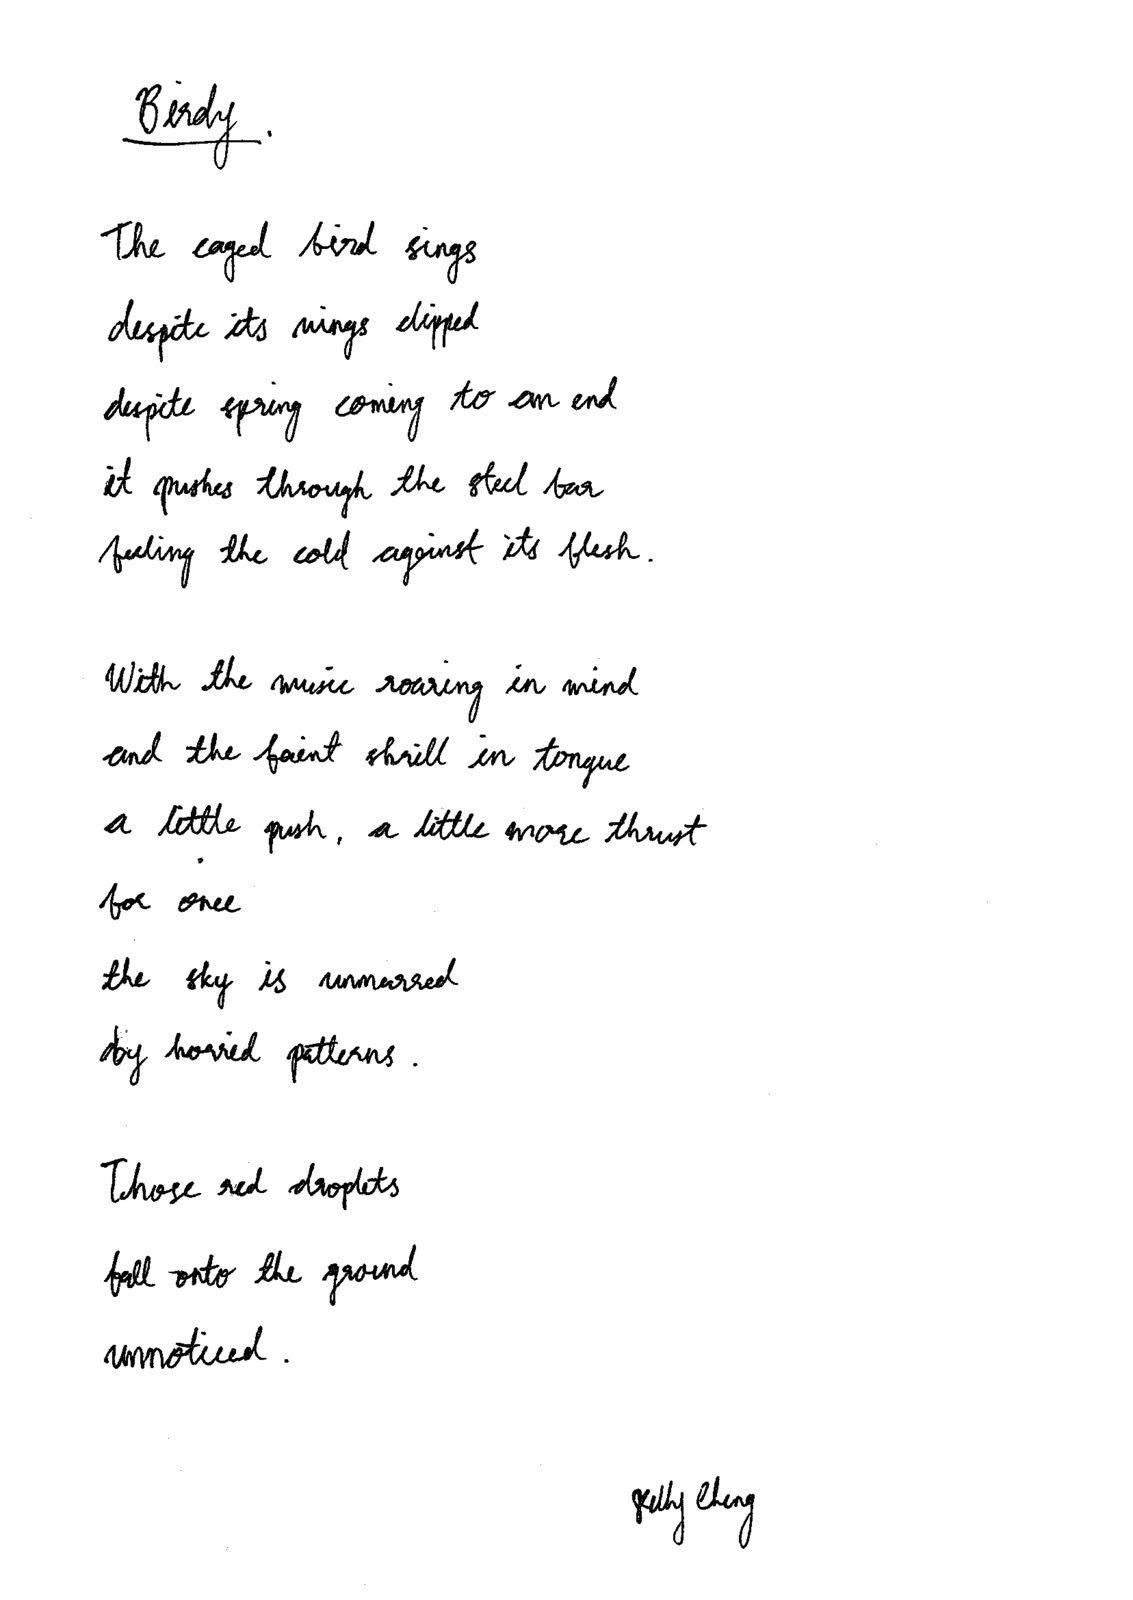 Birdy.
The caged bird sings
despite its wings clipped
despite spring coming to an end
it pushes through the steel bar
feeling the cold against its flesh.
With the music roaring in mind
and the faint shrill in tongue
a little push, a little more thrust
for once
the sky is unmarred
by horrid patterns.
Those red droplets
fall onto the ground
unnoticed.
Kelly Cheng